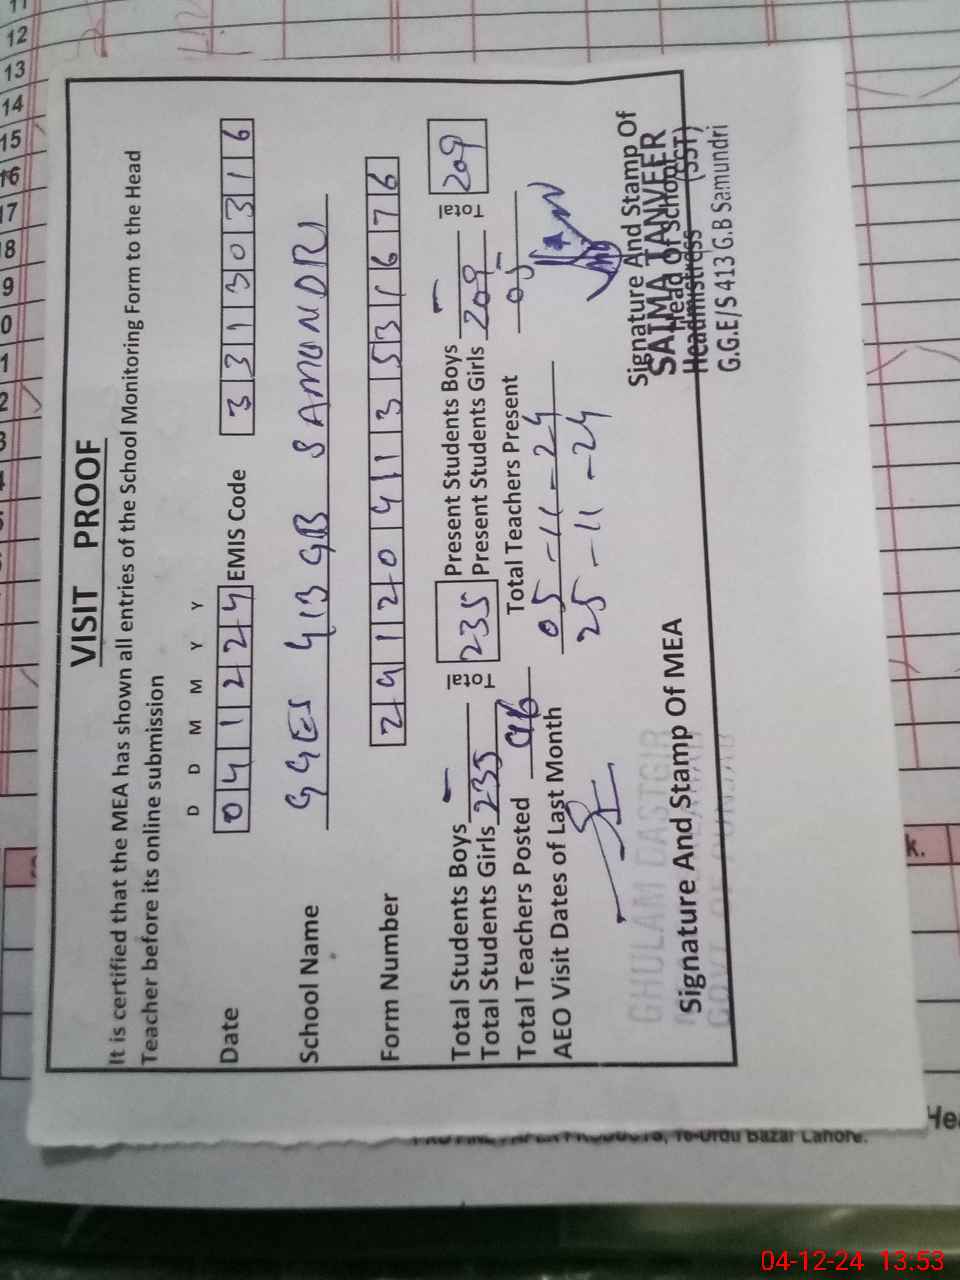 VISIT PROOF
It is certified that the MEA has shown all entries of the School Monitoring Form to the Head
Teacher before its online submission
D D M M Y Y
Date 041224 EMIS Code 33130316
School Name GGES 413 GB SAMUNDRI
Form Number 241204113531676
Total Students Boys — Present Students Boys —
Total Students Girls 235 Total 235 Present Students Girls 209 Total 209
Total Teachers Posted 06 Total Teachers Present 05
AEO Visit Dates of Last Month 05-11-24
25-11-24
GHULAM DASTGIR
Signature And Stamp Of MEA
Signature And Stamp Of
Head Of School
SAIMA TANVEER
Headmistress (SST)
G.G.E/S 413 G.B Samundri
Urdu Bazar Lahore.
11
12
13
14
15
16
17
18
04-12-24 13:53